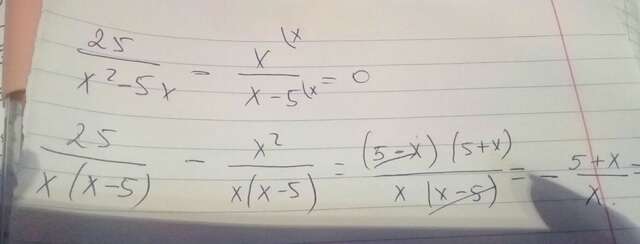 25/(x²-5x) - x(x/(x-5)(x = 0
25/(x(x-5)) - x²/(x(x-5)) = (5-x)(5+x)/(x(x-5)) = - (5+x)/x =